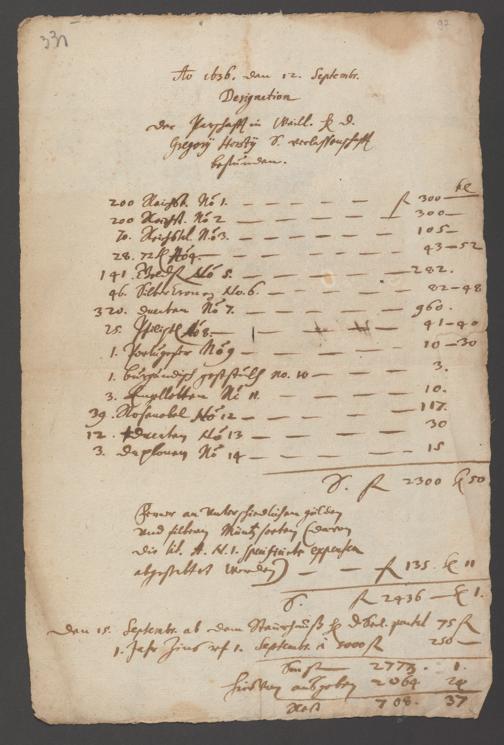 331
92
Ao 1636. den 12. Septembr.
Designation
der Parschafft in Weill. H. D.
Gregorÿ Horstÿ S. verlassenschafft
bestanden.
kr
200 Reichst. No 1. — — — — — fl 300 —
200 Reichst. No 2 — — — — — 300 —
70. Reichstal. No 3. — — — — — 105 —
28. No 4. — — — — 43 — 52
141. No 5. — — — — 282.
46. Silber Cronen No. 6. — — — — 82 — 48
320. Ducaten No 7. — — — — 960.
25. No 8. — — — — 41 — 40
1. Portugeser No 9 — — — — 10 — 30
1. burgundisch goltstükh no. 10 — — — — 3.
3. Engellotten No 11. — — — — 10.
39. Rosenobel No 12 — — — — 117.
12. Ducaten No 13 — — — — 30
3. Duplonen No 14 — — — — 15
S. fl 2300 kr 50
Ferner an unterschiedlichen gülden
und silbern Müntz sorten (davon
die lit. A. N. 1. specificirte expensen
abgestattet worden) — — fl 135. kr 11
S. fl 2436 — kr 1.
Den 15. Septembr. ab dem 75 fl
1. Jahr Zins uf 1. Septembr. 5000 fl 250 —
2773. 1.
hiervon ausgeben 2064 24
Rest 708. 37